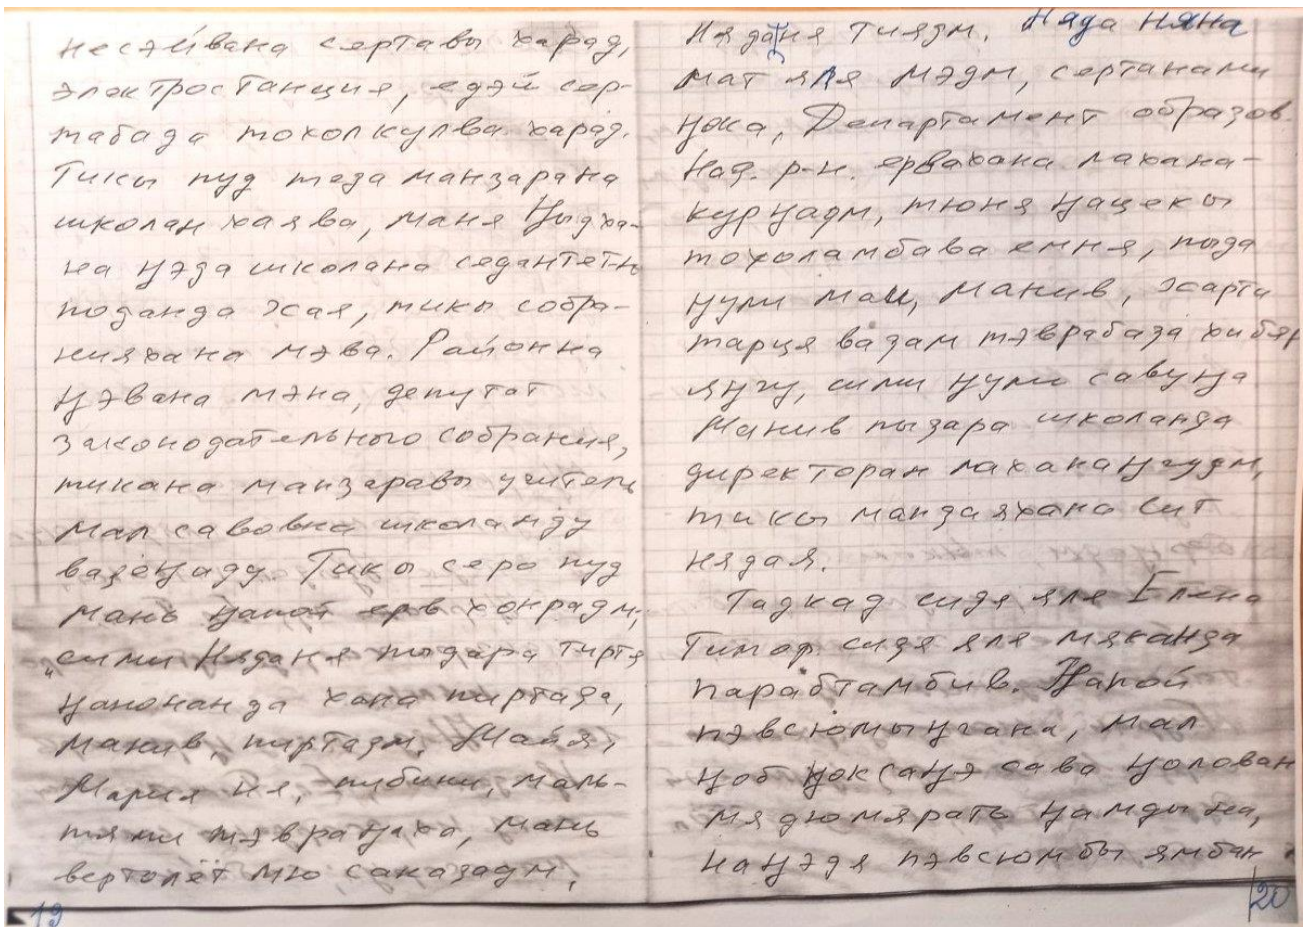 несэйвана сертавы харад,
электростанция, едэй сер-
табада тохолкулва харад.
Тикы пуд теда манзарана
школан хаява, маня Ңыдха-
на ңэда школана седантеть
поданда жая, тикы собра-
нияхана мэва. Районна
ңэвана мэна, депутат
законодательного собрания,
тикана манзаравы учитель
мал савовна школанду
вадеңаду. Тикы серо пуд
мань ңапой ерв хонрадм,
"сими Няданя тыдара тиртя
ңанонанда хона пиртада,
манив, пиртадм. Майя,
Мария Ня, пибини, маль-
тями тэвраңаха, мань
вертолёт мю саказадм,
19
Няданя тиядм. Няда няна
мат яля мэдм, сертанами
ңока, Департамент образов.
Над. р-н. ервахана лахана-
курңадм, тюня ңацекы
тохоламбава емня, пыда
ңули маш, манив, жарти
тарця вадам тэврабада хибяр
яңгу, сими ңули савуңа
Манив пыдара школанда
директоран лаханаңгудм,
тикы мандаяхана сит
нядая.
Тадкад сидя яля Елена
Тимоф. сидя яля мяканда
парабтамбив. Ңапой
пэвсюмыңгана, мал
ңоб ңоксаңэ сава ңолован
мядюмярать ңамдыңа,
наңэдя пэвсюмбы ямбан
20